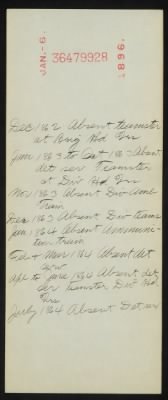 JAN.-6.
36479928
1896.
Dec 1862 Absent teamster
at Brig Hd Qrs
Jan 1863 to Oct 1863 Absent
det ser Teamster
at Div Hd Qrs
Nov 1863 Absent Div Amb
Train
Dec 1863 Absent Div teams
Jan 1864 Absent Ammuni-
tion train
Feb + Mar 1864 Absent det
Apl to June 1864 Absent det
ser Teamster Div Hd
Qrs
July 1864 Absent Det ser